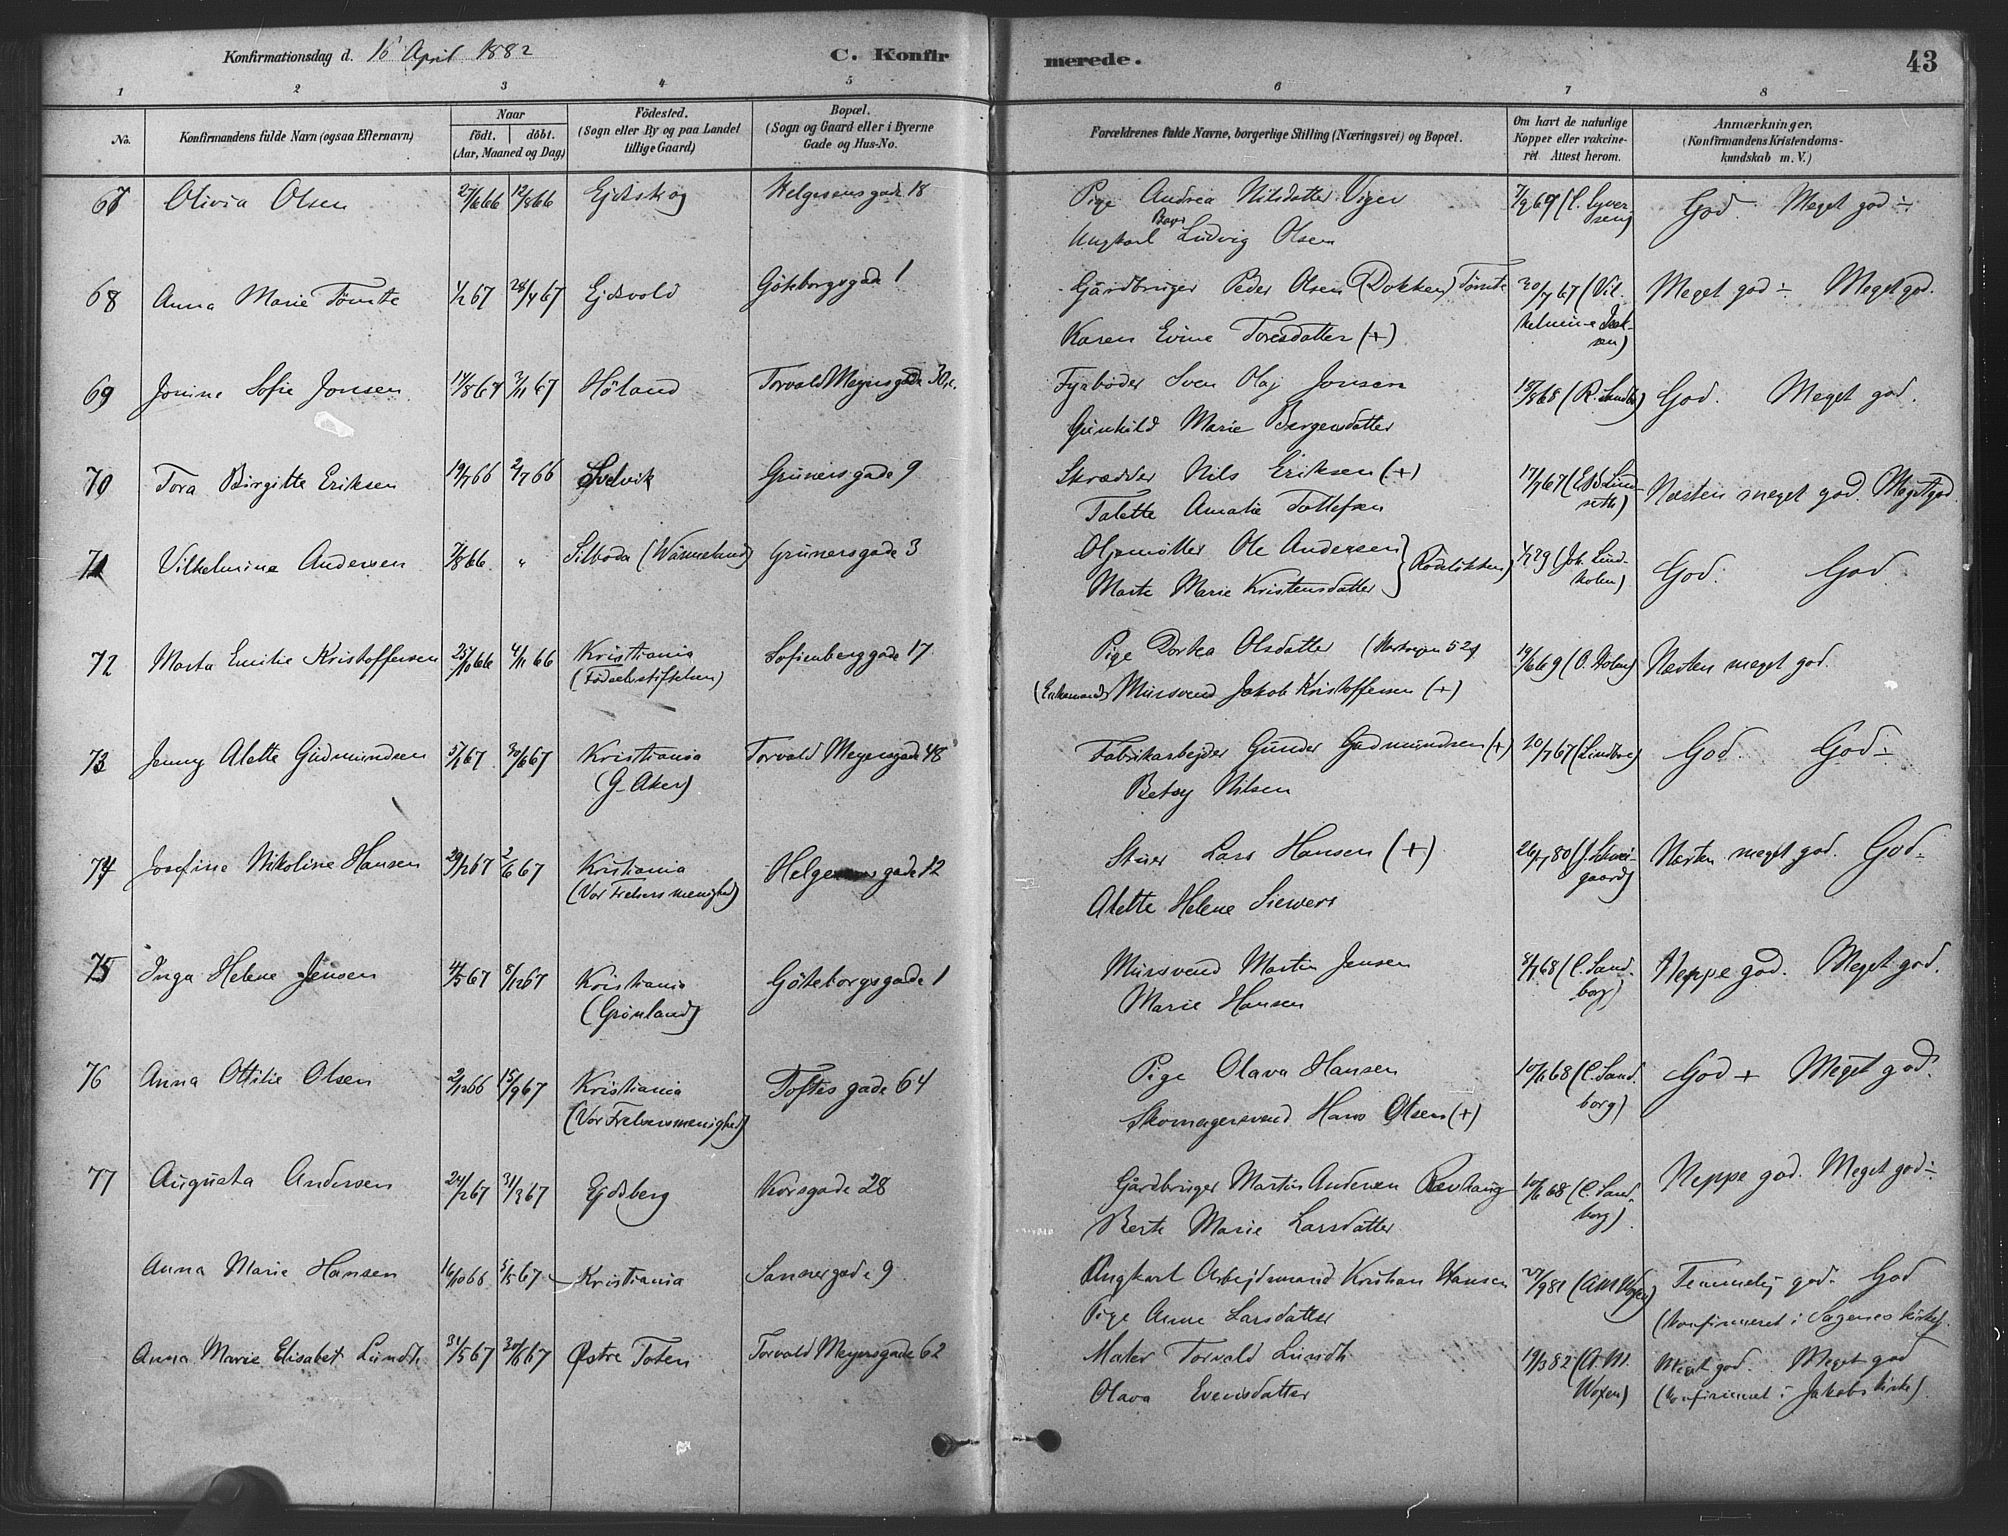 Konfirmationsdag d. 16 April 1882 C. Konfirmerede. 43
1 2 3 4 5 6 7 8
No. Konfirmandens fulde Navn (ogsaa Efternavn) Naar födt. döbt. (Aar, Maaned og Dag) Födested. (Sogn eller By og paa Landet tillige Gaard) Bopæl. (Sogn og Gaard eller i Byerne Gade og Hus-No. Forældrenes fulde Navne, borgerlige Stilling (Næringsvei) og Bopæl. Om havt de naturlige Kopper eller vakcineret Attest herom. Anmærkninger. (Konfirmandens Kristendomskundskab m. V.)
67 Olivia Olsen 27/6 66 12/8 66 Ejdskog Helgesensgade 18 Pige Andrea Nilsdatter Viger 7/9 69 (C. Syver God. Meget god ÷
Ungkarl Ludvig Olsen sen)
68 Anna Marie Tømte 1/2 67 28/4 67 Ejdsvold Göteborgsgade 1 Gårdbruger Peder Olsen (Dokken) Tømte 20/7 67 (Vil- Meget god ÷ Meget god.
Karen Evine Toresdatter (+) helmine Isak-
sen)
69 Jonine Sofie Jonsen 14/8 67 3/11 67 Höland Torvald Meyersgade 30,c. Fyrböder Sven Olaj Jonsen 18/8 68 (R. Sandb) God. Meget god.
Gunhild Marie Bergersdatter
70 Tora Birgitte Eriksen 19/1 66 2/7 66 Svelvik Grunersgade 9 Skrædder Nils Eriksen (+) 17/7 67 (E.B. Lund- Næsten meget god. Meget god
Talette Amalie Tollefsen seth)
71 Vilhelmine Andersen 7/8 66. „ Silboda (Wärmeland) Grunersgade 3 Oljemøller Ole Andersen } Rodeløkken) (Joh. Lind- God. God
Marte Marie Kristensdatter holm)
72 Marta Emilie Kristoffersen 25/10 66 4/11 66 Kristiania Sofienberggade 17 Pige Dortea Olsdatter 19/6 69 (O. Holm) Næsten meget god.
(Födselsstiftelsen) (Enkemand) Mursvend Jakob Kristoffersen (+)
73 Jenny Alette Gudmundsen 5/1 67. 30/6 67 Kristiania Torvald Meyersgade 48 Fabrikarbejder Gunder Gudmundsen (+) 20/7 67 (Lindboe) God. God ÷
(G. Aker) Betsy Nilsen
74 Josefine Nikoline Hansen 29/1 67 2/6 67 Kristiania Helgesensgade 12 Stuer Lars Hansen (+) 26/1 80 (J. Schwei- Næsten meget god. God.
(Vor Frelsers menighed) Alette Helene Siewers gaard)
75 Inga Helene Jensen 4/5 67 8/12 67 Kristiania Göteborgsgade 1 Mursvend Martin Jensen 8/7 68 (C. Sand- Neppe god. Meget god.
(Grönland) Marie Hansen borg)
76 Anna Ottilie Olsen 2/12 66 15/9 67 Kristiania Toftes gade 64 Pige Olava Hansen 10/6 68 (C. Sand- God + Meget god.
(Vor Frelsersmenighed) Skomagersvend Hans Olsen (+) borg)
77 Augusta Andersen 24/2 67 31/3 67 Ejdsberg Korsgade 28 Gårdbruger Martin Andersen Revhaug 10/6 68 (C. Sand- Neppe god. Meget god ÷
Berte Marie Larsdatter borg)
Anna Marie Hansen 16/10 66 5/5 67 Kristiania Sannergade 9 Ungkarl Arbejdsmand Kristian Hansen 27/9 81 (A M Woxen) Temmelig god. God
Pige Anne Larsdatter (Konfirmeret i Sagenes kirke).
Anna Marie Elisabet Lundth 31/5 67 30/6 67 Østre Toten Torvald Meyersgade 62 Maler Torvald Lundth 19/3 82 (A. M. Meget god. Meget god
Olava Evensdatter Woxen) (Konfirmeret i Jakobs kirke).